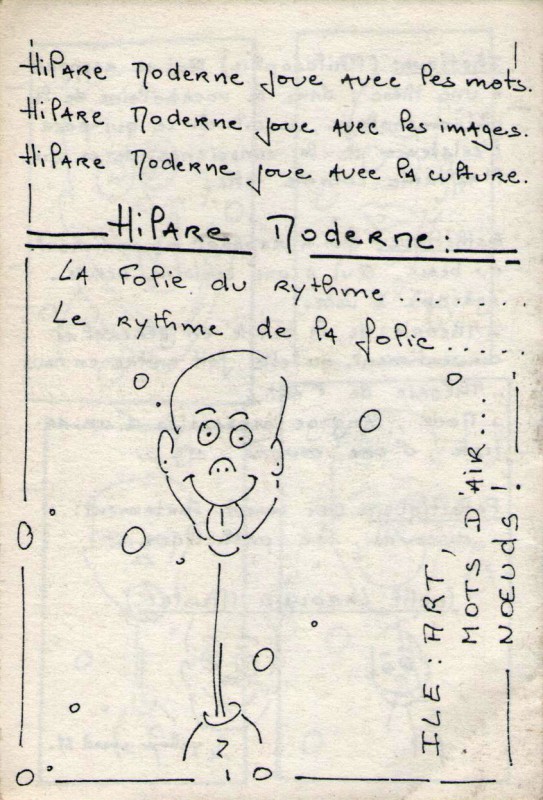 HiPARE MODERNE joue AVEC les mots.
HiPARE MODERNE joue AVEC les images.
HiPARE MODERNE joue AVEC lA culture.
HiPARE MODERNE :
LA folie du RYthme . . .
Le RYthme de lA folie . . . . .
ILE : ART,
MOTS, D'AIR....
NŒUDS !